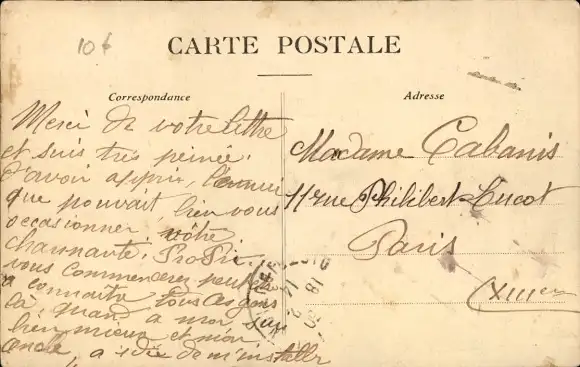 10f
CARTE POSTALE
Correspondance
Adresse
Merci de votre lettre
et suis très peinée
d'avoir appris, l'ennui
que pouvait, bien vous
occasionner, vôtre
charmante. Propri.
vous commencerez
a connaître tous ces gens
là quand a moi
bien mieux et mon
oncle, a idée de m'installer
Madame Cabanis
11 rue Philibert-Lucot
Paris
XIIIem